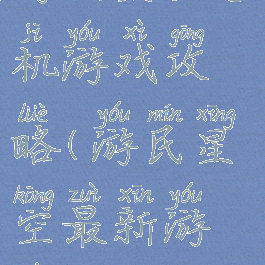 jī yóu xì gōng
机游戏攻
lüè yóu mín xīng
略(游民星
kōng zuì xīn yóu
空最新游